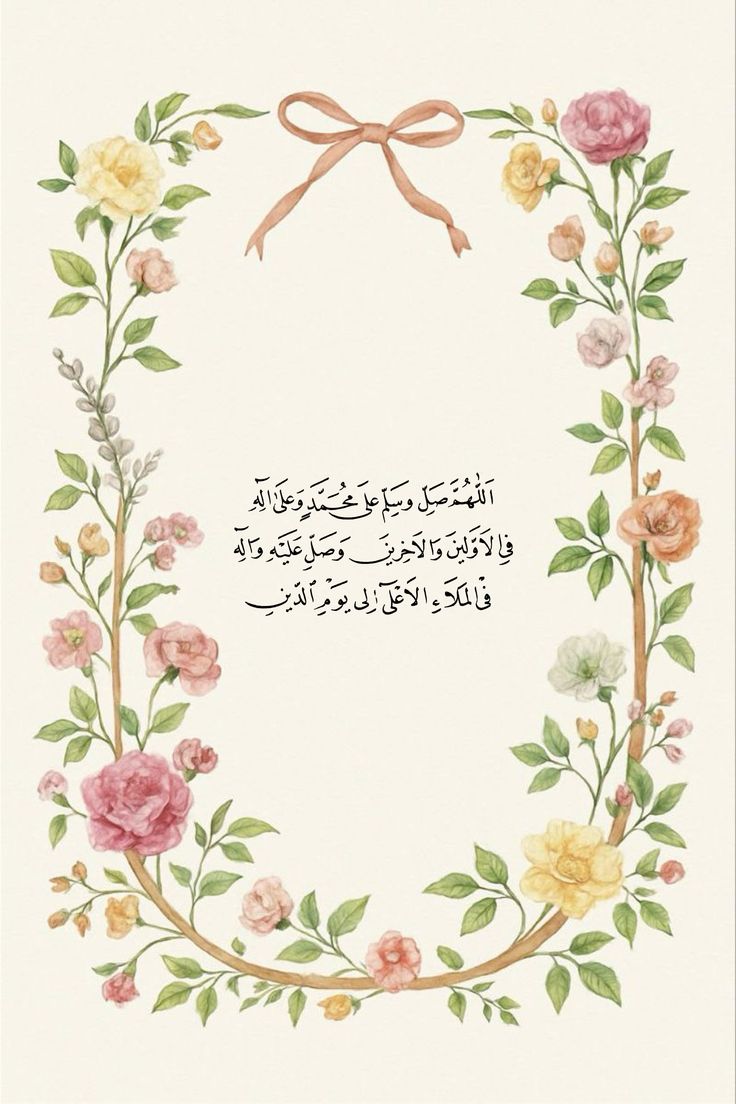 اَللّٰهُمَّ صَلِّ وَسَلِّمْ عَلَى مُحَمَّدٍ وَعَلٰى اٰلِهِ
فِي الْاَوَّلِينَ وَالْاٰخِرِينَ وَصَلِّ عَلَيْهِ وَاٰلِهِ
فِي الْمَلَاءِ الْاَعْلٰى اِلٰى يَوْمِ الدِّينِ